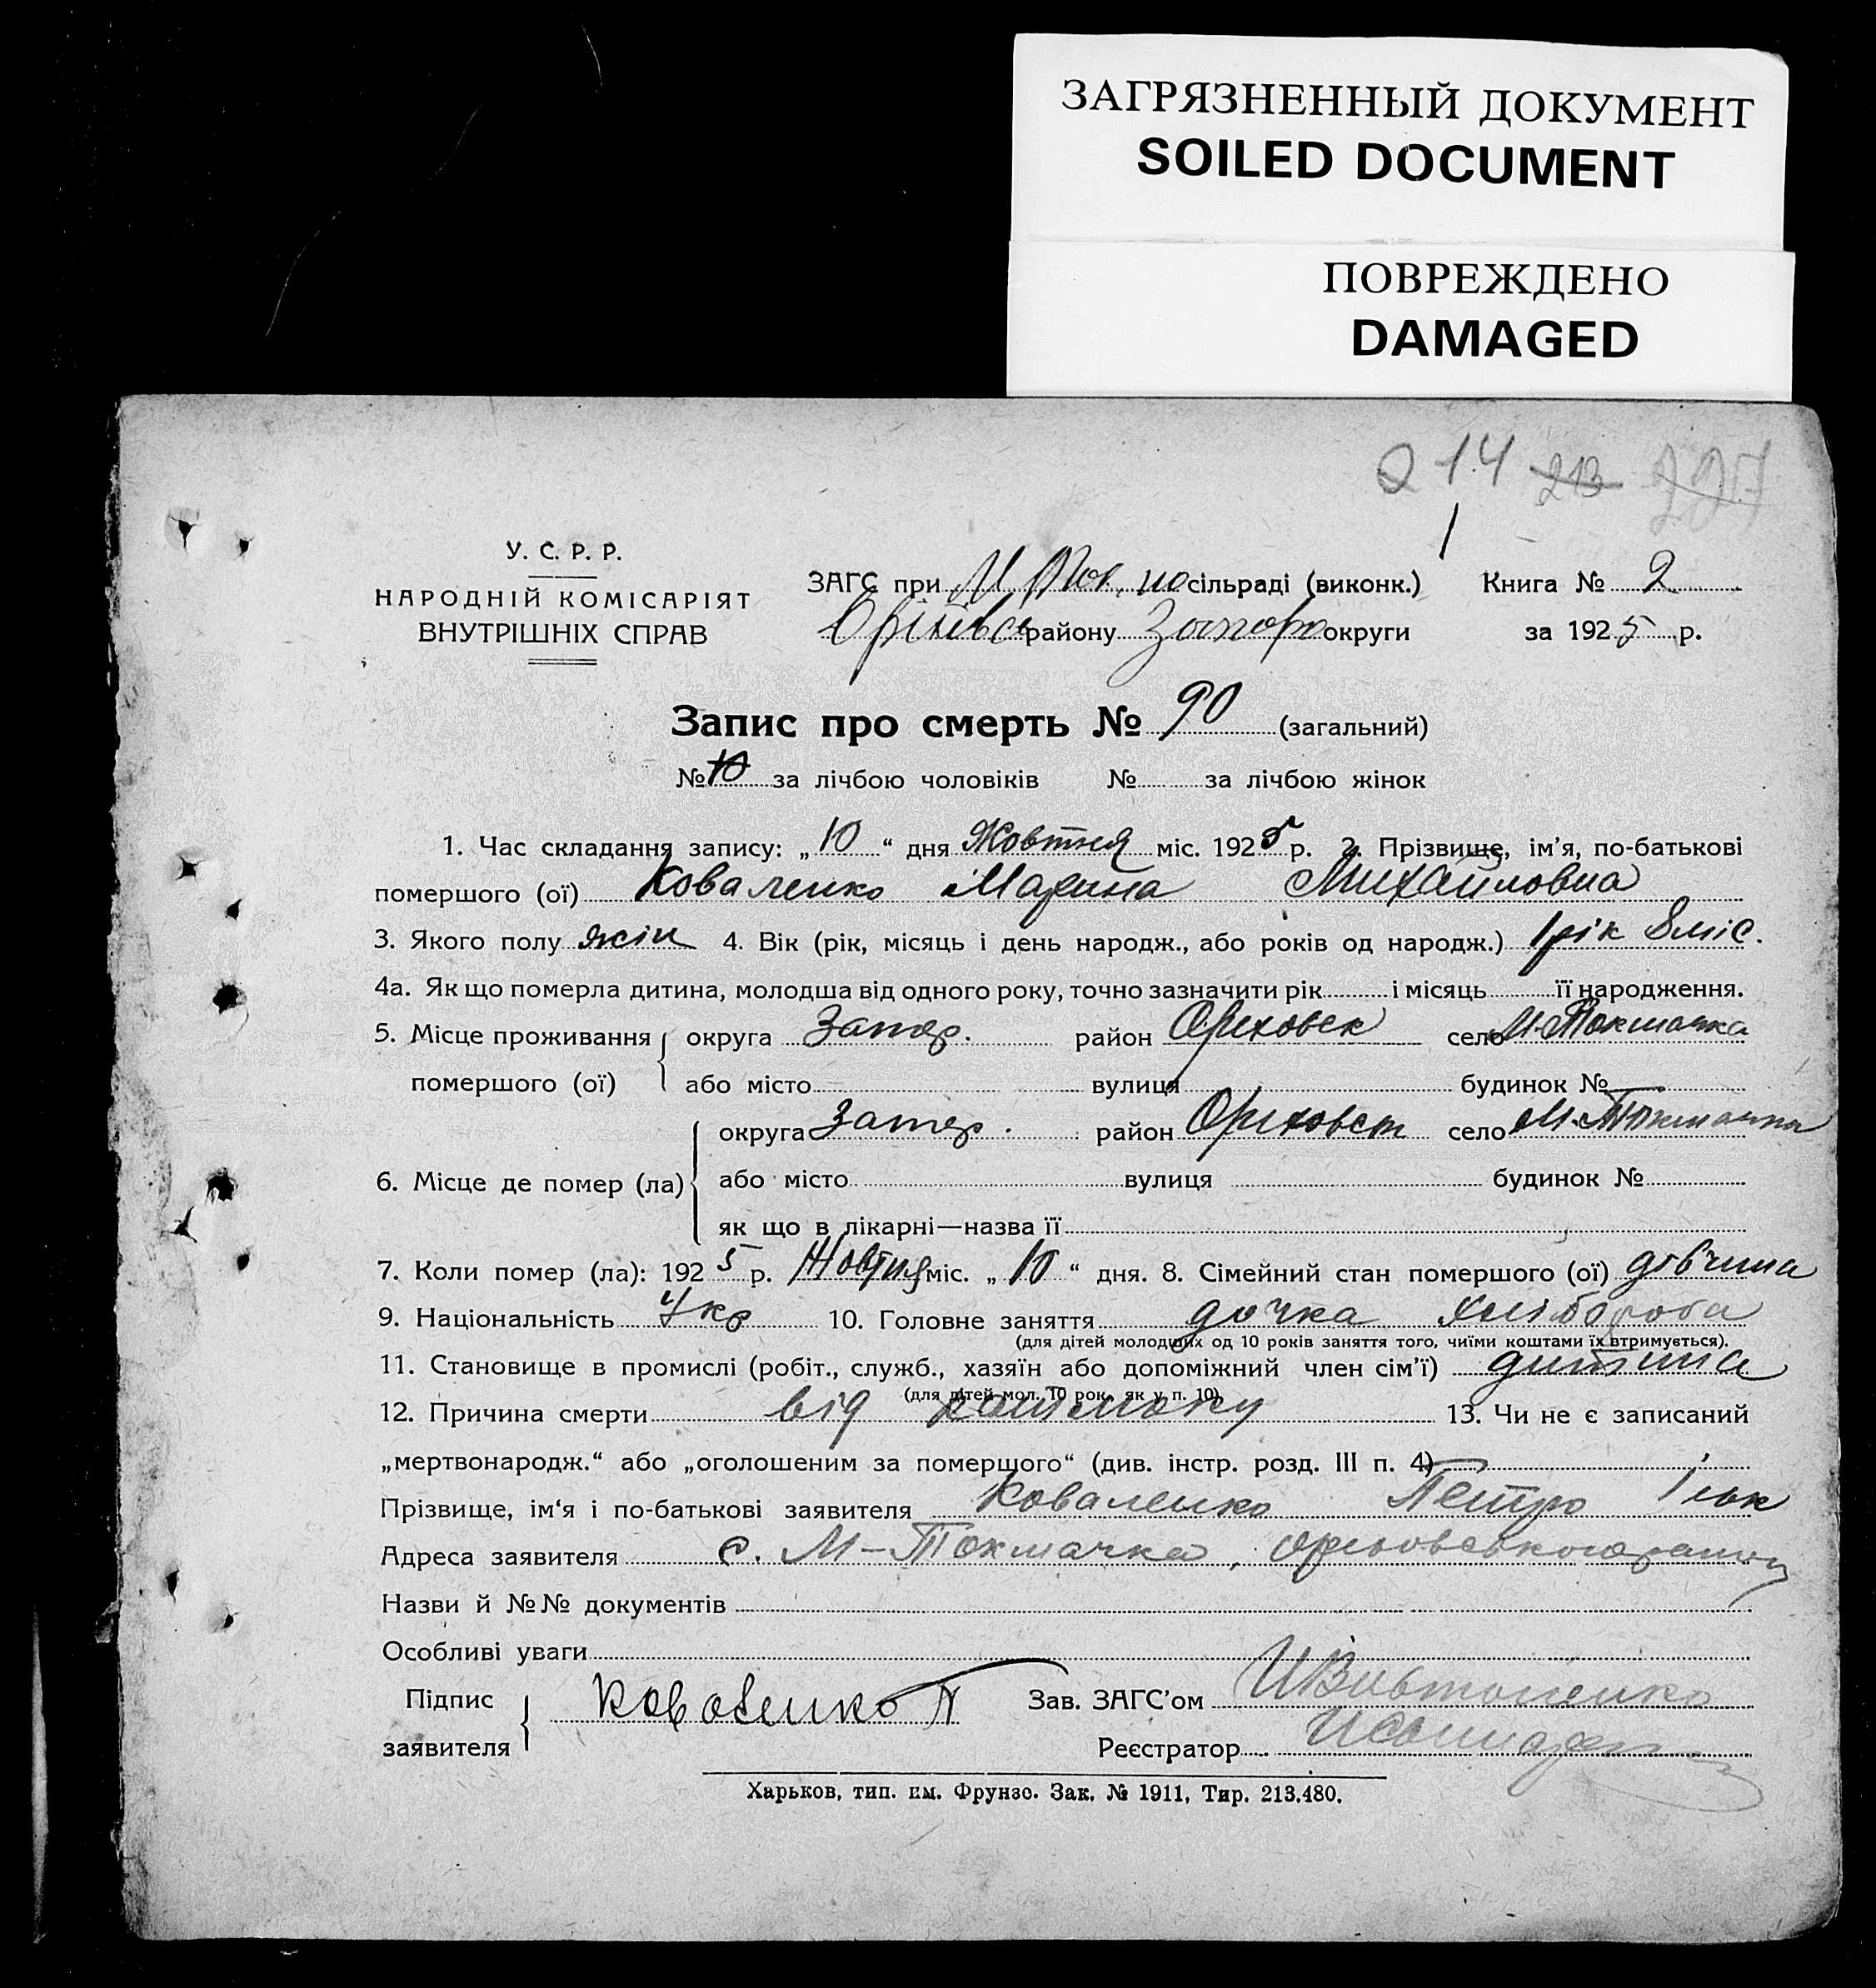 ЗАГРЯЗНЕННЫЙ ДОКУМЕНТ
SOILED DOCUMENT
ПОВРЕЖДЕНО
DAMAGED
214 213 227
У. С. Р. Р.
НАРОДНІЙ КОМІСАРІЯТ
ВНУТРІШНІХ СПРАВ
ЗАГС при М Ток. сільраді (виконк.) Книга № 2
Оріхівсь району Запоро округи за 1925 р.
Запис про смерть № 90 (загальний)
№ 10 за лічбою чоловіків № за лічбою жінок
1. Час складання запису: „10“ дня Жовтня міс. 1925 р. 2. Прізвище, ім’я, по-батькові
помершого (ої) Коваленко Марина Михайловна
3. Якого полу жін 4. Вік (рік, місяць і день народж., або років од народж.) 1 рік 8 міс.
4а. Як що померла дитина, молодша від одного року, точно зазначити рік і місяць її народження.
5. Місце проживання помершого (ої) округа Запор. район Ореховск село М-Токмачка
або місто вулиця будинок №
6. Місце де помер (ла) округа Запор. район Ореховск село М-Токмачка
або місто вулиця будинок №
як що в лікарні—назва її
7. Коли помер (ла): 1925 р. Жовтня міс. „10“ дня. 8. Сімейний стан помершого (ої) дівчина
9. Національність Укр 10. Головне заняття дочка хлібороба
(для дітей молодших од 10 років заняття того, чиїми коштами їх втримується).
11. Становище в промислі (робіт., служб., хазяїн або допоміжний член сім’ї) дитина
(для дітей мол. 10 рок. як у п. 10)
12. Причина смерти від кашлюку 13. Чи не є записаний
„мертвонародж.“ або „оголошеним за помершого“ (див. інстр. розд. III п. 4)
Прізвище, ім‘я і по-батькові заявителя Коваленко Петро
Адреса заявителя с. М-Токмачка,
Назви й №№ документів
Особливі уваги
Підпис заявителя Коваленко П Зав. ЗАГС’ом
Реєстратор
Харьков, тип. им. Фрунзе. Зак. № 1911, Тир. 213.480.